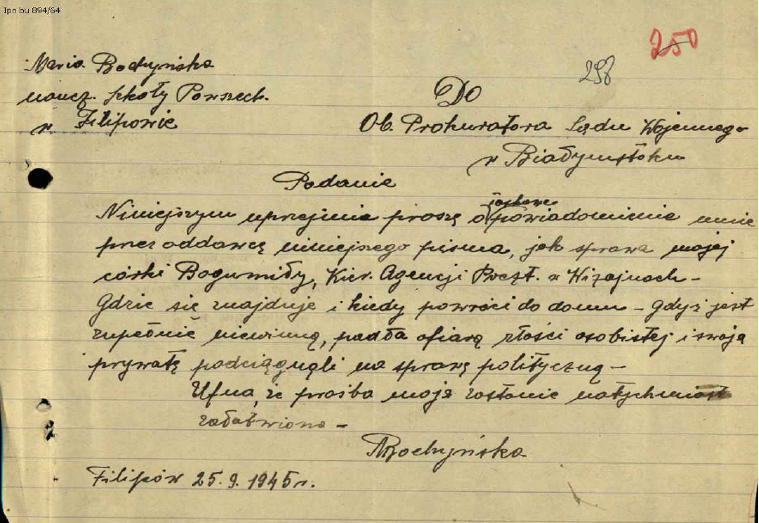 Ipn bu 894/64
250
298
Maria Bochyńska
naucz. Szkoły Powszech.
w Filipowie
Do
Ob. Prokuratora Sądu Wojennego
w Białymstoku
Podanie
łaskawe
Niniejszym uprzejmie proszę o powiadomienie mnie
przez oddawcę niniejszego pisma, jak sprawa mojej
córki Bogumiły, Kier. Agencji Poczt. w Wiżajnach –
gdzie się znajduje i kiedy powróci do domu – gdyż jest
zupełnie niewinną, padła ofiarą złości osobistej i swoją
prywatę podciągnęli na sprawę polityczną –
Ufna, że prośba moja zostanie natychmiast
załatwiona –
MBochyńska
Filipów 25.9.1945 r.